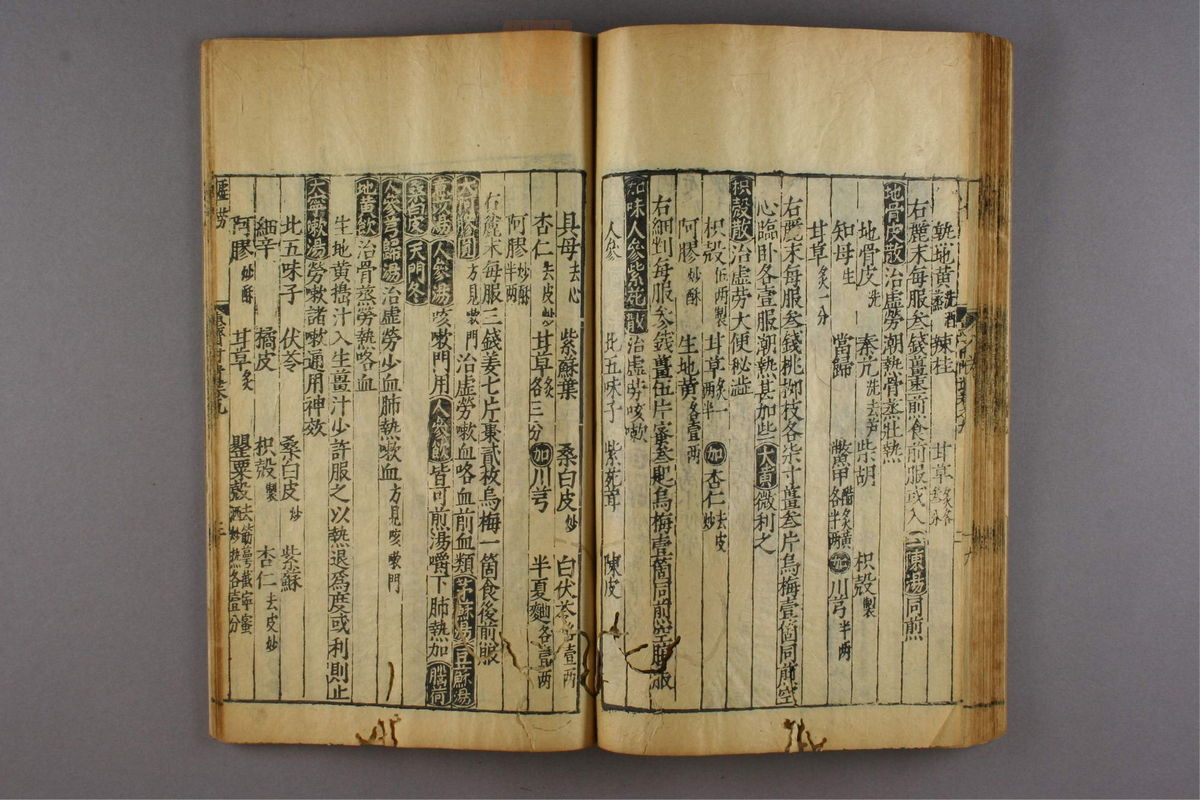 熟地黃 洗酒蒸 辣桂 甘草 炙各叁分
右麄末每服叁錢薑棗煎食前服或入二陳湯同煎
地骨皮散 治虛勞潮熱骨蒸壯熱
地骨皮 洗 秦艽 洗去芦 柴胡 枳殼 製
知母 生 當歸 鱉甲 醋炙黃各半兩 加 川芎 半兩
甘草 炙一分
右麄末每服叁錢桃柳枝各柒寸薑叁片烏梅壹箇同煎空
心臨卧各壹服潮熱甚加些 大黃 微利之
枳殼散 治虛勞大便秘澁
枳殼 製 甘草 炙一兩半 加 杏仁 去皮炒
阿膠 炒酥 生地黃 各壹兩
右細剉每服叁錢薑伍片蜜叁匙烏梅壹箇同煎空腹服
加味人參紫菀散 治虛勞咳嗽
人參 北五味子 紫菀茸 陳皮
貝母 去心 紫蘇葉 桑白皮 炒 白茯苓 各壹兩
杏仁 去皮炒 甘草 炙各三分 加 川芎 半夏麯 各壹兩
阿膠 炒酥半兩
右麄末每服三錢姜七片棗貳枚烏梅一箇食後煎服
大阿膠圓 方見嗽門 治虛勞嗽血咯血前血類 茅蘇湯 豆蘇湯
人參湯 咳嗽門用 人參飲 皆可煎湯嚼下肺熱加 腦荷
桑白皮 天門冬
人參芎歸湯 治虛勞少血肺熱嗽血 方見咳嗽門
地黃飲 治骨蒸勞熱咯血
生地黃搗汁入生薑汁少許服之以熱退爲度或利則止
大寧嗽湯 勞嗽諸嗽通用神效
北五味子 茯苓 桑白皮 炒 紫蘇
細辛 橘皮 枳殼 製 杏仁 去皮炒
阿膠 炒酥 甘草 炙 罌粟殼
虛勞